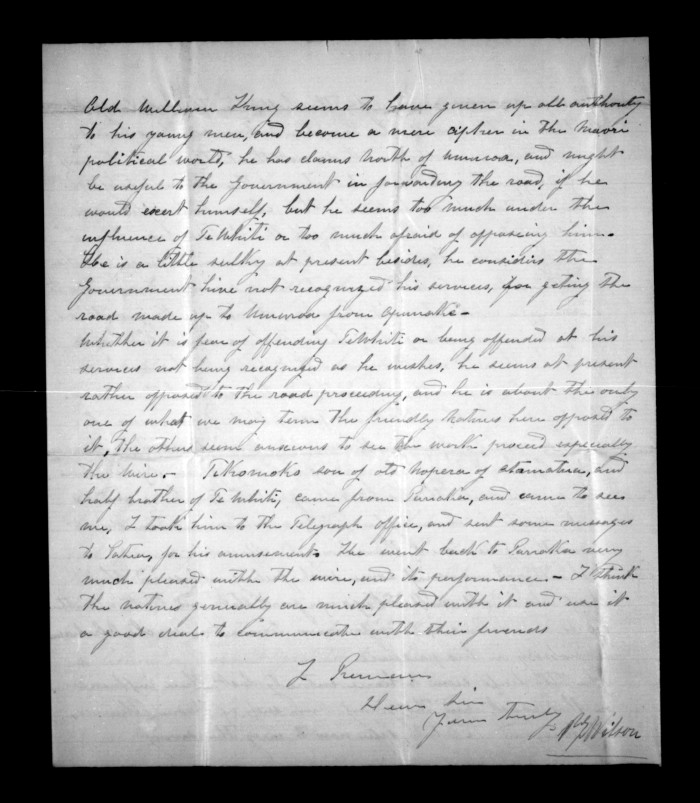 Old William King seems to have given up all authority
to his young men, and become a mere cipher in the Maori
political world, he has claims North of Umuroa, and might
be useful to the Government in forwarding the road, if he
would exert himself, but he seems too much under the
influence of TeWhiti or too much afraid of opposing him –
He is a little sulky at present besides, he considers the
Government have not recognized his services, for geting the
road made up to Umuroa from Opunake –
Whether it is fear of offending TeWhiti or being offended at his
services not being recognized as he wishes, he seems at present
rather opposed to the road proceeding, and he is about the only
one of what we may term the friendly natives here opposed to
it, the others seem anxious to see the work proceed especially
the wire. – TeKomoko son of old Nopera of and
half brother of Te Whiti, came from Parraka, and came to see
me, I took him to the Telegraph office, and sent some messages
to Patea, for his amusement. He went back to Parraka very
much pleased with the wire, and its performance – I think
the natives generally are much pleased with it and use it
a good deal to communicate with their friends
I Remain
Dear Sir
Yours truly
Wilson